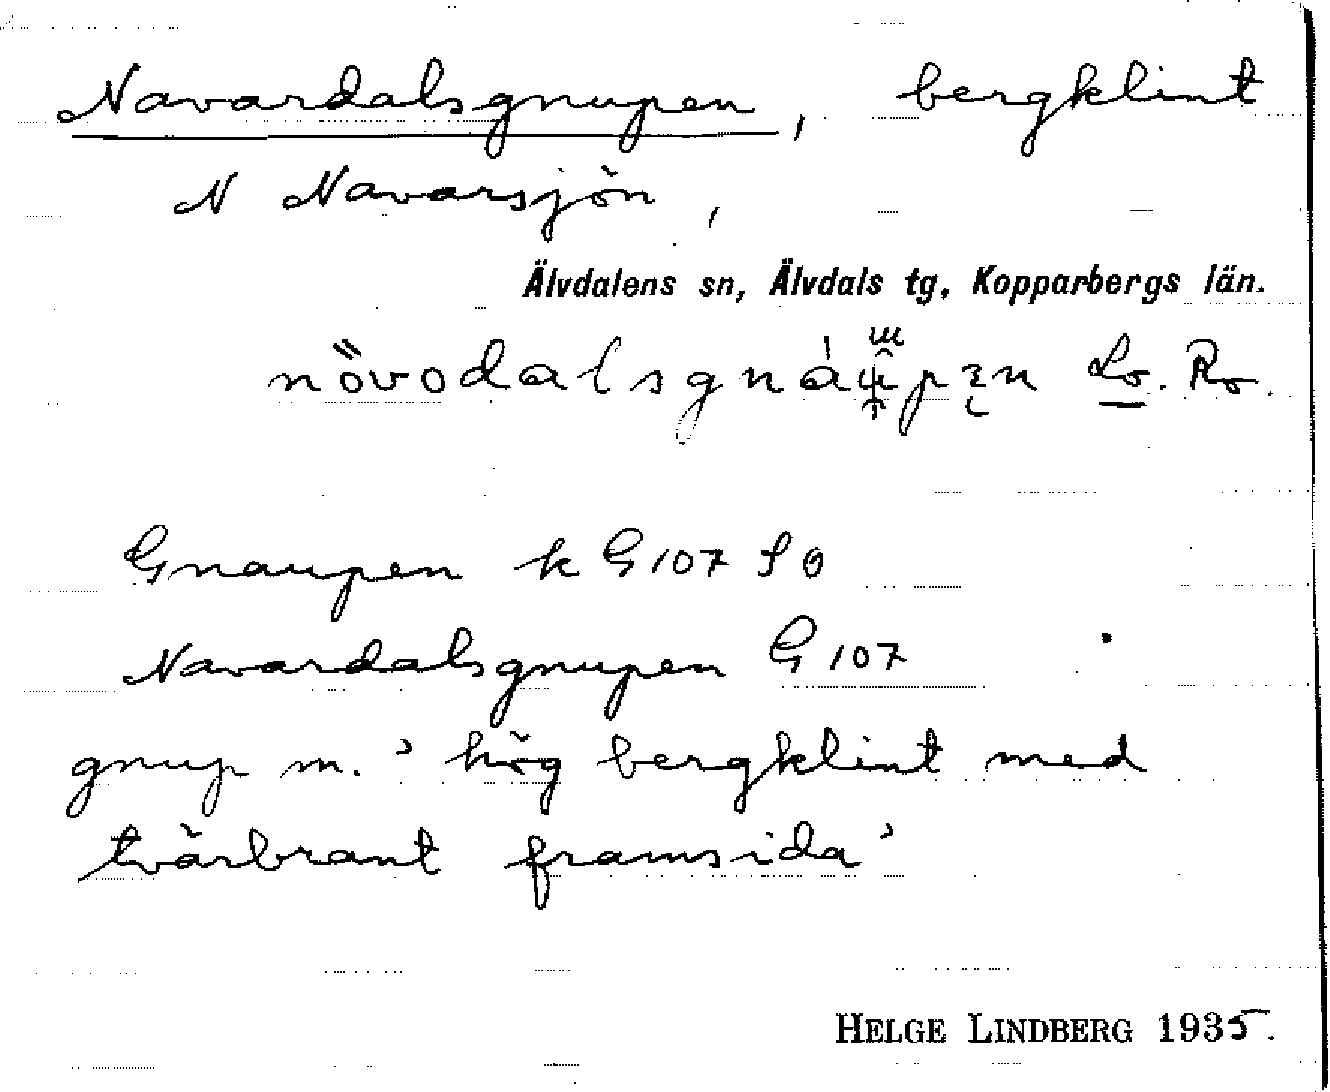 Navardalsgnupen, bergklint
N Navarsjön,
Älvdalens sn, Älvdals tg, Kopparbergs län.
Lo. Ro.
Gnaupen k G 107 SO
Navardalsgnupen G 107
gnup m. ’hög bergklint med
tvärbrant framsida’
HELGE LINDBERG 1935.